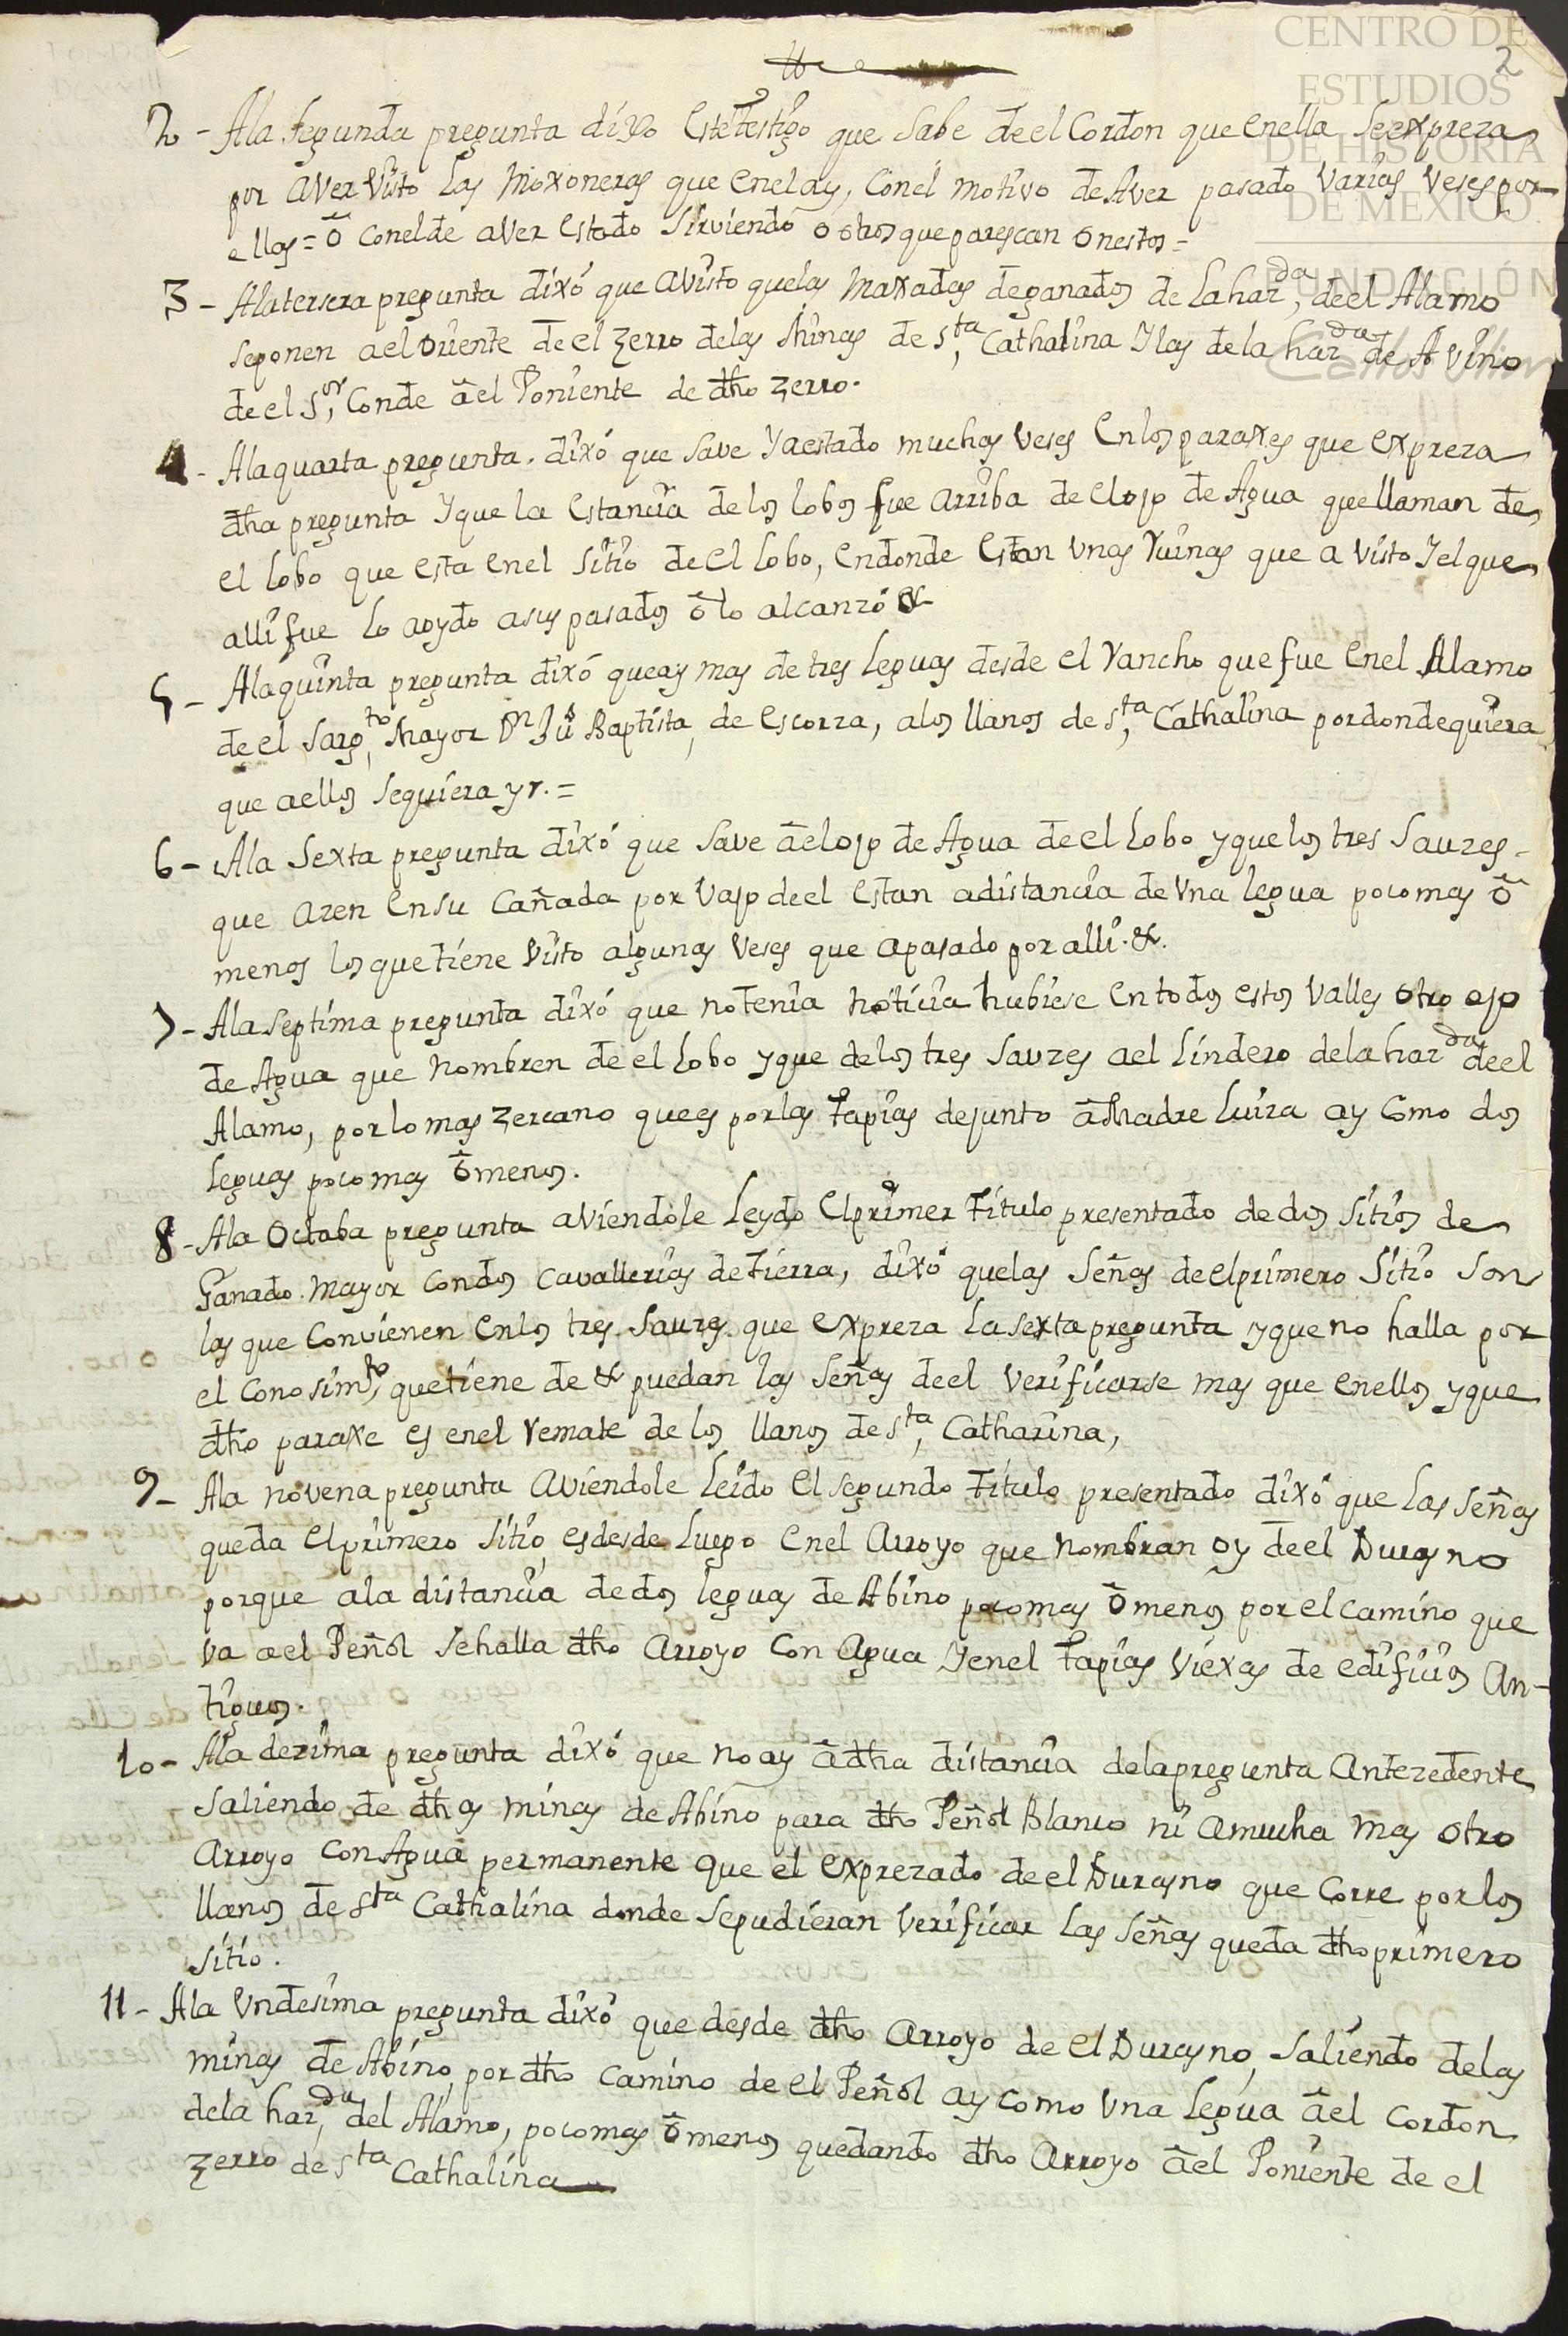 CENTRO DE
ESTUDIOS
DE HISTORIA
DE MEXICO
FUNDACIÓN
Carlos Slim
2
2 - Ala segunda pregunta dixo Este testigo que sabe de el Cordon que enella se expreza
por aver visto Las Moxoneras que enel ay, Con el motivo de Aver pasado varias veses por
ellas = ô Conel de aver estado sirviendo ô otros que parescan onestos =
3 - Ala tersera pregunta dixó que a visto que las Maxadas de ganados de la haz.da de el Alamo
se ponen a el oriente de el Zerro de las Minas de S.ta Cathalina Y las de la haz.da de Avino
de el S.or Conde âel Poniente de dho zerro.
4 - Ala quarta pregunta. dixó que save Y a estado muchas veses En los paraxes que expreza
dha pregunta Y que la Estancia de los lobos fue arriba de el ojo de Agua que llaman de
el lobo que esta en el sitio de el Lobo, en donde estan Unas Ruinas que a visto Y el que
alli fue lo a oydo a sus pasados ô lo alcanzó &
5 - Ala quinta pregunta dixó que ay mas de tres leguas desde el Rancho que fue en el Alamo
de el Sarg.to Mayor Dn Ju Baptista, de Escorza, a los llanos de S.ta Cathalina por donde quiera
que a ellos se quiera yr. =
6 - Ala Sexta pregunta dixó que save âel ojo de Agua de el Lobo y que los tres Sauzes -
que azen en su Cañada por vajo de el estan a distancia de Una legua poco mas ô
menos los que tiene visto algunas veses que a pasado por alli. &.
7 - Ala septima pregunta dixó que no tenia noticia hubiese en todos estos Valles otro ojo
de Agua que nombren de el Lobo y que de los tres Sauzes a el Lindero de la haz.da de el
Alamo, por lo mas zercano que es por las tapias de junto â Madre Luiza ay como dos
leguas poco mas ô menos.
8 - Ala Octaba pregunta aviendole Leydo El primer Titulo presentado de dos Sitios de
Ganado Mayor con dos Cavallerias de Tierra, dixó que las Señas de el primero Sitio son
las que Convienen en los tres Sauzes que expreza la sexta pregunta y que no halla por
el Conosim.to que tiene de & puedan las Señas de el verificarse mas que en ellos y que
dho paraxe es en el Remate de los llanos de S.ta Catharina,
9 - Ala novena pregunta aviendole Leido el segundo titulo presentado dixó que las Señas
que da El primero Sitio, es desde luego en el Arroyo que nombran oy de el Durasno
porque a la distancia de dos leguas de Abino poco mas ô menos por el camino que
va a el Peñol se halla dho Arroyo con agua Y en el tapias viexas de edificios An-
tiguos.
10 - Ala dezima pregunta dixó que no ay â dha distancia de la pregunta Antezedente
saliendo de dhas minas de Abino para dho Peñol Blanco ni a mucha mas otro
Arroyo con Agua permanente que el exprezado de el Durasno que Corre por los
llanos de S.ta Cathalina donde se pudieran verificar las Señas que da dho primero
Sitio.
11 - Ala Undesima pregunta dixó que desde dho Arroyo de el Durasno saliendo de las
minas de Abino, por dho Camino de el Peñol ay como Una Legua âel Cordon
de la haz.da del Alamo, poco mas ô menos quedando dho Arroyo âel Poniente de el
Zerro de S.ta Cathalina